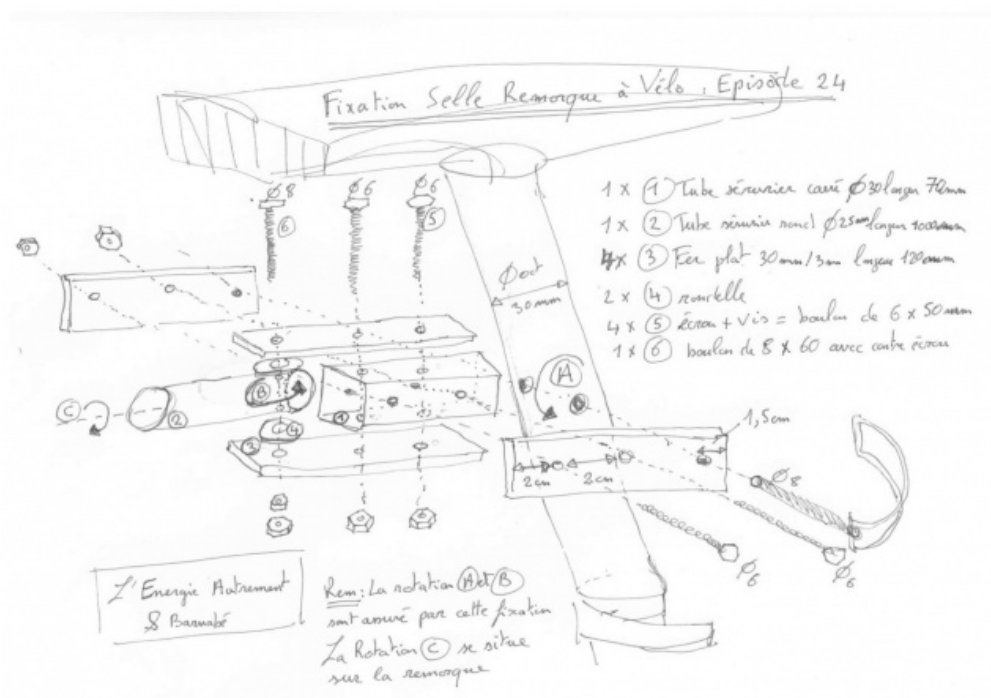 Fixation Selle Remorque à Vélo. Episode 24
1 x ① Tube sérurier carré Ø 30 longeur 70mm
1 x ② Tube sérurier rond Ø25mm longeur 1000mm
4x ③ Fer plat 30mm/3mm longeur 120mm
2 x ④ rondelle
4 x ⑤ écrou + vis = boulon de 6 x 50mm
1 x ⑥ boulon de 8 x 60 avec contre écrou
Ø8
Ø6
Ø6
⑥
⑤
Øext
30mm
Ⓐ
Ⓒ
②
Ⓑ
①
④
③
1,5cm
2cm
2cm
Ø8
Ø6
Ø6
L'Energie Autrement
& Barnabé
Rem: La rotation Ⓐ et Ⓑ
sont assuré par cette fixation
La Rotation Ⓒ se situe
sur la remorque